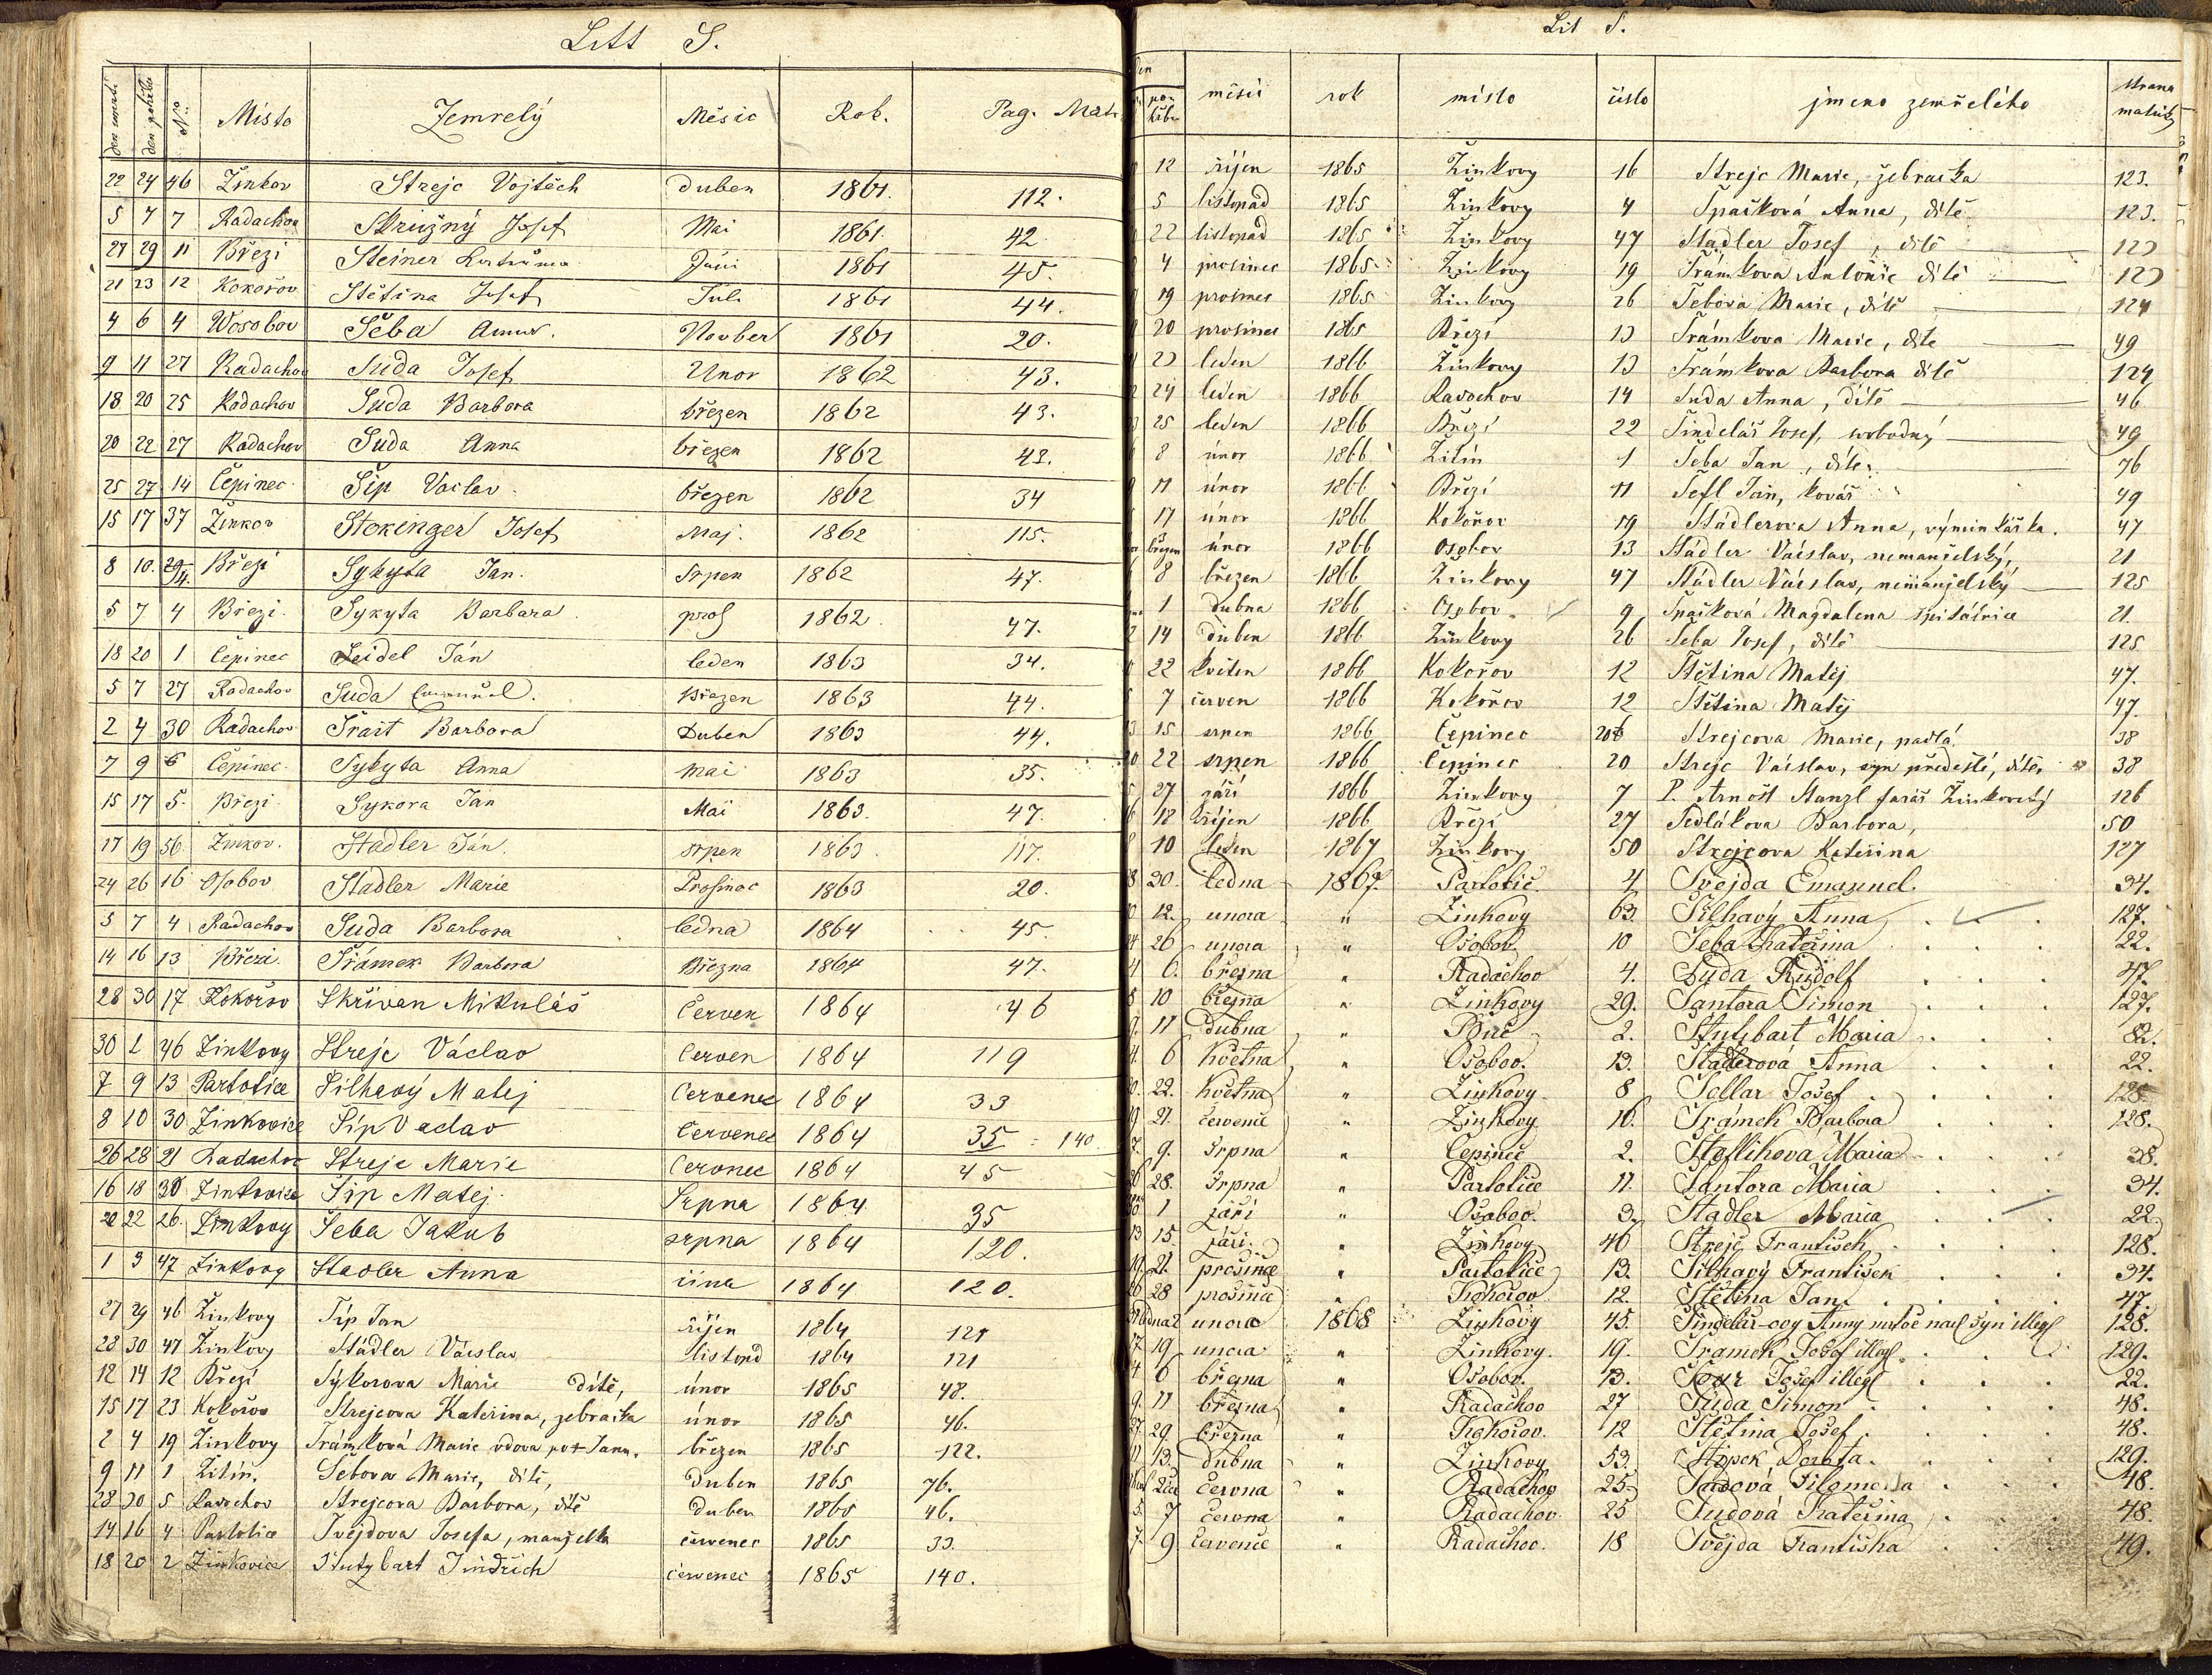 Litt S.
den úmrtí den pohřbu No. Místo Zemřelý Měsic Rok. Pag. Matr.
22 24 46 Žinkov Strejc Vojtěch Duben 1861. 112.
5 7 7 Radachov Skružný Josef Mai 1861. 42
27 29 11 Březi Steiner Juni 1861 45.
21 23 12 Kokořov Stětina Josef Juli 1861 44.
4 6 4 Wosobov Šeba Novber 1861 20.
9 11 27 Radachov Suda Josef Unor 1862 43.
18 20 25 Radachov Suda Barbora březen 1862 43.
20 22 27 Radachov Suda Anna březen 1862 43.
25 27 14 Čepinec Šip Vaclav březen 1862 34
15 17 37 Žinkov Stokinger Josef Maj. 1862 115.
8 10. 29/14. Březi Sykyta Jan. Srpen 1862 47.
5 7 4 Březi. Sykyta Barbara pros 1862. 47.
18 20 1 Čepinec Seidel Ján leden 1863 34.
5 7 27 Radachov Suda Březen 1863 44.
2 4 30 Radachov Šrait Barbora Duben 1863 44.
7 9 6 Čepinec. Sykyta Anna Mai 1863 35.
15 17 5. Březi. Sykora Jan Mai 1863. 47.
17 19 56. Žinkov. Stadler Ján. srpen 1863. 117.
24 26 16 Osobov Stadler Marie Prosinec 1863 20.
5 7 4 Radachov Suda Barbora ledna 1864 45.
14 16 13 Březi. Šrámek Barbora Března 1864 47.
28 30 17 Kokořov Skřivan Mikuláš Červen 1864 46
30 2 46 Žinkovy Strejc Václav Červen 1864 119
7 9 13 Partotice Silhavý Matej Červenec 1864 33
8 10 30 Žinkovice Šíp Vaclav Červenec 1864 35 140.
26 28 21 Radachov Strejc Marie Červonec 1864 45
16 18 30 Žinkovice Šíp Matej. Srpna 1864. 35
20 22 26. Žinkovy Šeba Jakub srpna 1864 120.
1 3 47 Žinkovy Stadler Anna 1864 120.
27 29 46 Žinkovy Šíp Jan říjen 1864 121
28 30 47 Žinkovy Städler Václav listopd 1864 121
12 14 12 Březí Sýkorova Marie dítě, únor 1865 48.
15 17 23 Kokořov Strejcova Kateřina, žebračka únor 1865 46.
2 4 19 Žinkovy Šrámková Marie vdova po + Janu. březen 1865 122.
9 11 1 Žitín. Šebova Marie, dítě, Duben 1865 76.
28 30 5 Radochov Strejcova Barbora, dítě Duben 1865 46.
14 16 4 Partotice Švejdova Josefa, manželka červenec 1865 33.
18 20 2 Žinkovice Stutzbart Jindřich červenec 1865 140.
Lit S.
den pohřbu měsíc rok místo číslo jmeno zemřelého strana matriky
12 říjen 1865 Žinkovy 16 Strejc Marie, žebračka 123.
5 listopad 1865 Žinkovy 4 Špačková Anna, dítě 123.
22 listopad 1865 Žinkovy 47 Stadler Josef, dítě 123
4 prosinec 1865 Žinkovy 19 Šrámkova Antonie dítě 123
19 prosinec 1865 Žinkovy 26 Šebova Marie, dítě 124
20 prosinec 1865 Březí 13 Šrámkova Marie, dítě 49
23 leden 1866 Žinkovy 13 Šrámkova Barbora dítě 124
24 leden 1866 Radochov 14 Suda Anna, dítě 46
25 leden 1866 Březí 22 Šindelář Josef, svobodný 49
8 únor 1866 Žitín 1 Šeba Jan, dítě 76
11 únor 1866 Březí 11 Šefl Jan, kovář 49
17 únor 1866 Kokořov 19 Städlerova Anna, výminkářka. 47
3 březen únor 1866 Osobov 13 Städler Václav, nemanželský, 21
8 březen 1866 Žinkovy 47 Städler Václav, nemanželský 125
1 dubna 1866 Osobov 9 Špačková Magdalena špitálnice 21.
14 duben 1866 Žinkovy 26 Šeba Josef, dítě 125
22 květen 1866 Kokořov 12 Štětina Matěj 47.
7 červen 1866 Kokořov 12 Štětina Matěj 47.
15 srpen 1866 Čepinec 20 Strejcova Marie, 38
22 srpen 1866 Čepinec 20 Strejc Václav, syn předešlé, dítě 38
27 září 1866 Žinkovy 7 P. Arnošt Stanzl farář Žinkovský 126
18 říjen 1866 Březí 27 Sedlákova Barbora, 50
10 leden 1867 Žinkovy 50 Strejcova Kateřina 127
30. ledna 1867. Partotič 4 Švejda Emanuel. 34.
12. unora " Žinkovy 63. Šilhavý Anna 127.
26 unora " Osobov. 10 Šeba Kateřina 22.
6. března " Radachov 4. Suda Rudolf 47.
10 března " Žinkovy 29. Šantora Šimon 127.
11 dubna " 2. Stutzbart Maria 82.
6 května " Osobov. 13. Stadlerová Anna 22.
22. května " Žinkovy 8 Sellar Josef 128
21. červenec " Žinkovy 16. Šrámek Barbora 128.
9. Srpna " Čepinec 2. Maria 38.
28. Srpna " Partotice 11 Šantora Maria 34.
1 září " Osobov. 3. Stadler Maria 22
15. září. " Žinkovy 46 Strejc František 128.
21. prosince " Partotice 13. Šilhavý František 34.
28 prosince " Kokořov 12. Štětina Jan 47.
2 unora 1868 Žinkovy 45. Šindelář-ovy Anny syn illeg 128.
19 unora " Žinkovy. 19. Šramek Josef illeg. 129.
6 března " Osobov. 13. Josef illeg 22.
11 března " Radachov 27 Suda Šimon 48.
29 března " Kokořov. 12 Štětina Josef. 48.
13. dubna " Žinkovy 53. Štipek Dorota. 129.
června " Radachov 25 Sudová Filomena 48.
7 června " Radachov. 25 Sudová Kateřina 48.
9 červenec " Radachov. 18 Švejda Františka 49.